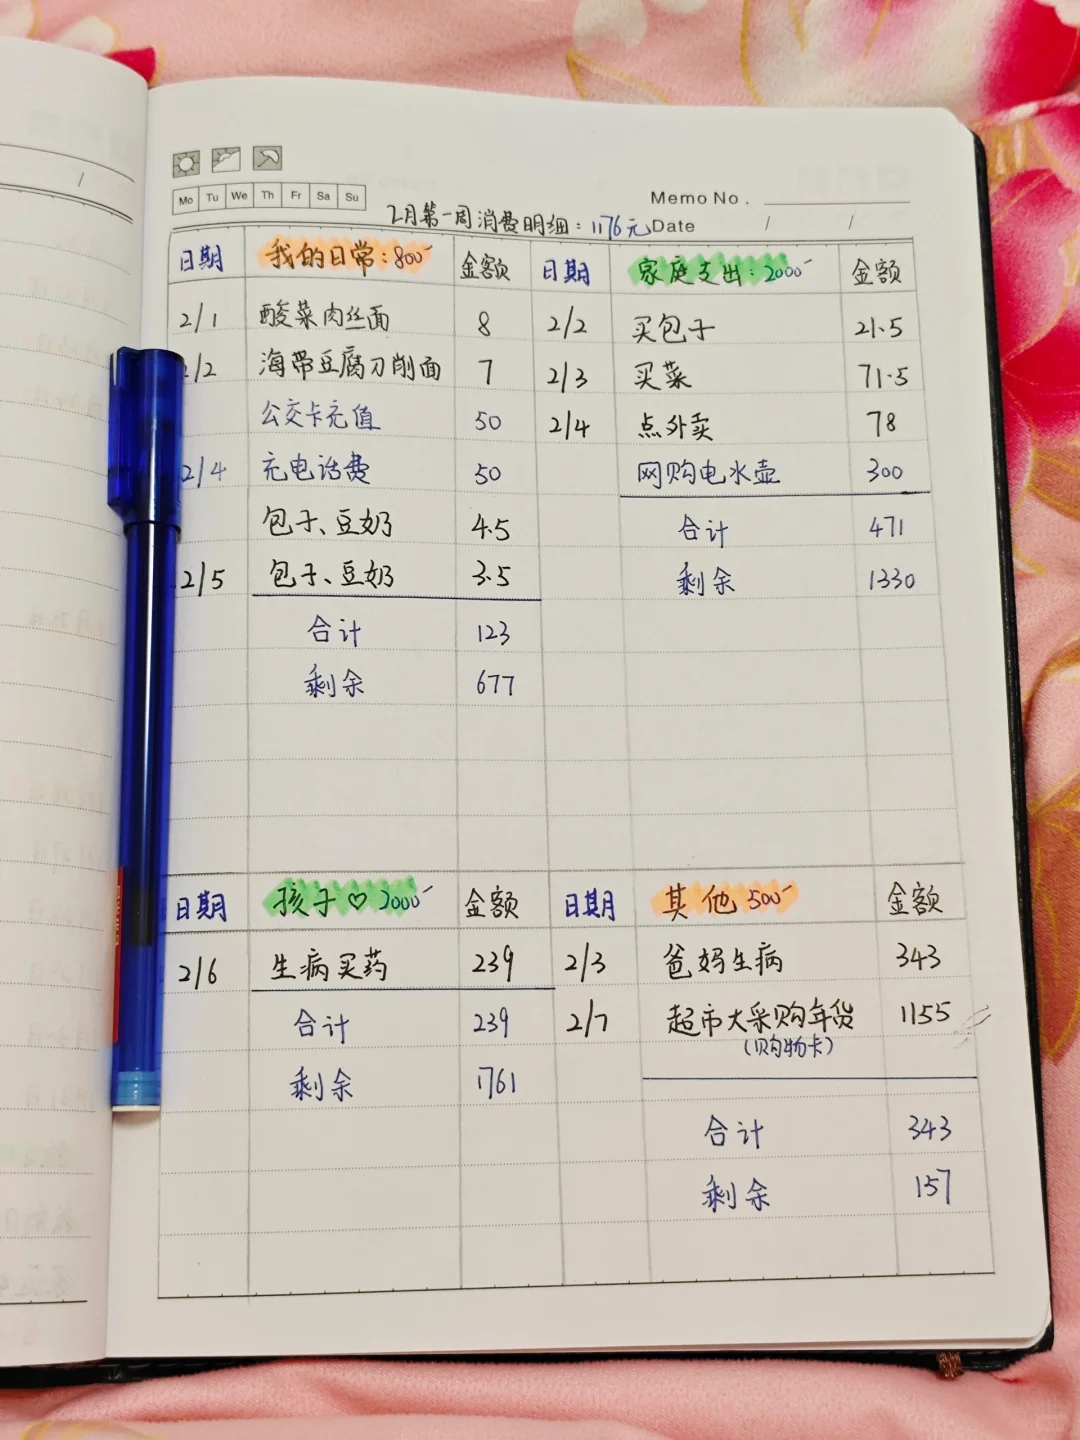 Mo Tu We Th Fr Sa Su
Memo No.
2月第一周消费明细:1176元
Date / /
日期 我的日常:800 金额
2/1 酸菜肉丝面 8
2/2 海带豆腐刀削面 7
公交卡充值 50
2/4 充电话费 50
包子、豆奶 4.5
2/5 包子、豆奶 3.5
合计 123
剩余 677
日期 家庭支出:2000 金额
2/2 买包子 21.5
2/3 买菜 71.5
2/4 点外卖 78
网购电水壶 300
合计 471
剩余 1330
日期 孩子♡2000 金额
2/6 生病买药 239
合计 239
剩余 1761
日期 其他 500 金额
2/3 爸妈生病 343
2/7 超市大采购年货 1155
(购物卡)
合计 343
剩余 157